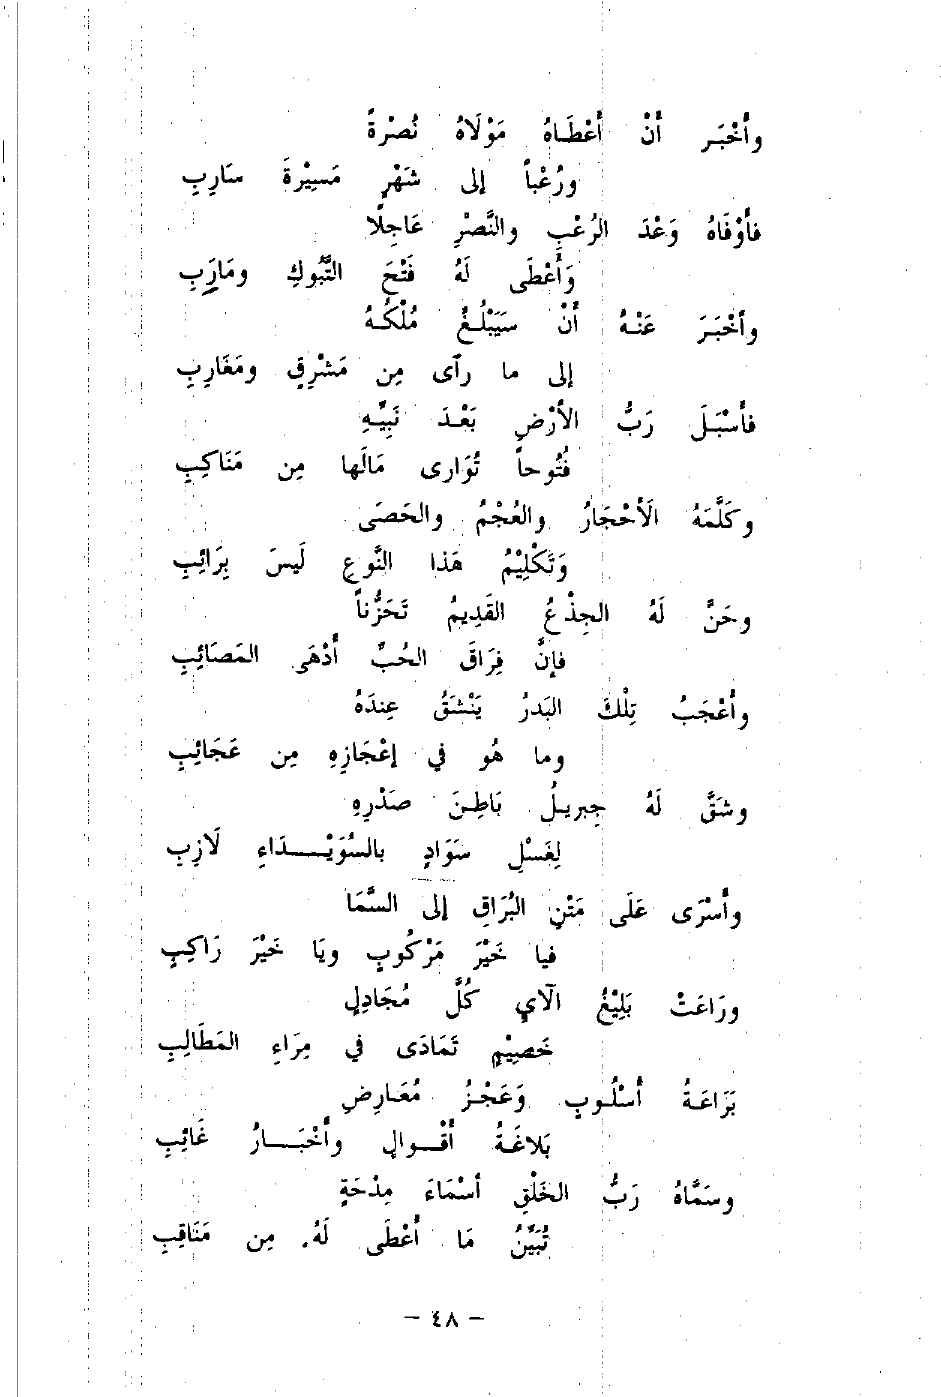 وأُخْبَر أَنْ أَعْطَاهُ مَوْلَاهُ نُصْرَةً
ورُعْباً إلى شَهْرٍ مَسِيْرَةَ سَارِبِ
فأَوْفَاهُ وَعْدَ الرُعْبِ والنَّصْرِ عَاجِلًا
وَأَعْطَى لَهُ فَتْحَ التَّبُوكِ ومَارِبِ
وأَخْبَرَ عَنْهُ أَنْ سَيَبْلُغُ مُلْكُهُ
إلى ما رأى مِن مَشْرِقٍ ومَغَارِبِ
فأَسْبَلَ رَبُّ الأَرْضِ بَعْدَ نَبِيِّهِ
فُتُوحاً تُوَارى مَالَها مِن مَنَاكِبِ
وكَلَّمَهُ الَأحْجَارُ والعُجْمُ والحَصَى
وَتَكْلِيْمُ هَذا النَّوعِ لَيسَ بِرَائِبِ
وحَنَّ لَهُ الجِذْعُ القَدِيمُ تَحَزُّناً
فإنَّ فِرَاقَ الحُبِّ أَدْهَى المَصَائِبِ
وأَعْجَبُ تِلْكَ البَدرُ يَنْشَقُّ عِندَهُ
وما هُو في إعْجَازِهِ مِن عَجَائِبِ
وشَقَّ لَهُ جِبريلُ بَاطِنَ صَدْرِهِ
لِغَسْلِ سَوَادٍ بالسُوَيْدَاءِ لَازِبِ
وأَسْرَى عَلَى مَتْنِ البُرَاقِ إلى السَّمَا
فيا خَيْرَ مَرْكُوبٍ ويَا خَيْرَ رَاكِبِ
ورَاعَتْ بَلِيْغُ الآيِ كُلَّ مُجَادِلٍ
خَصِيْمٍ تَمَادَى في مِرَاءِ المَطَالِبِ
بَرَاعَةُ أُسْلُوبٍ وَعَجْزُ مُعَارِضٍ
بَلاغَةُ أَقْوالٍ وأَخْبَارُ غَائِبِ
وسَمَّاهُ رَبُّ الخَلْقِ أسْمَاءَ مِدْحَةٍ
تُبَيِّنُ مَا أَعْطَى لَهُ. مِن مَنَاقِبِ
- ٤٨ -